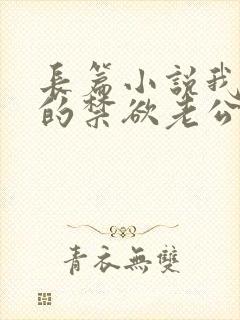 長篇小説我
的禁欲老公
青衣無雙